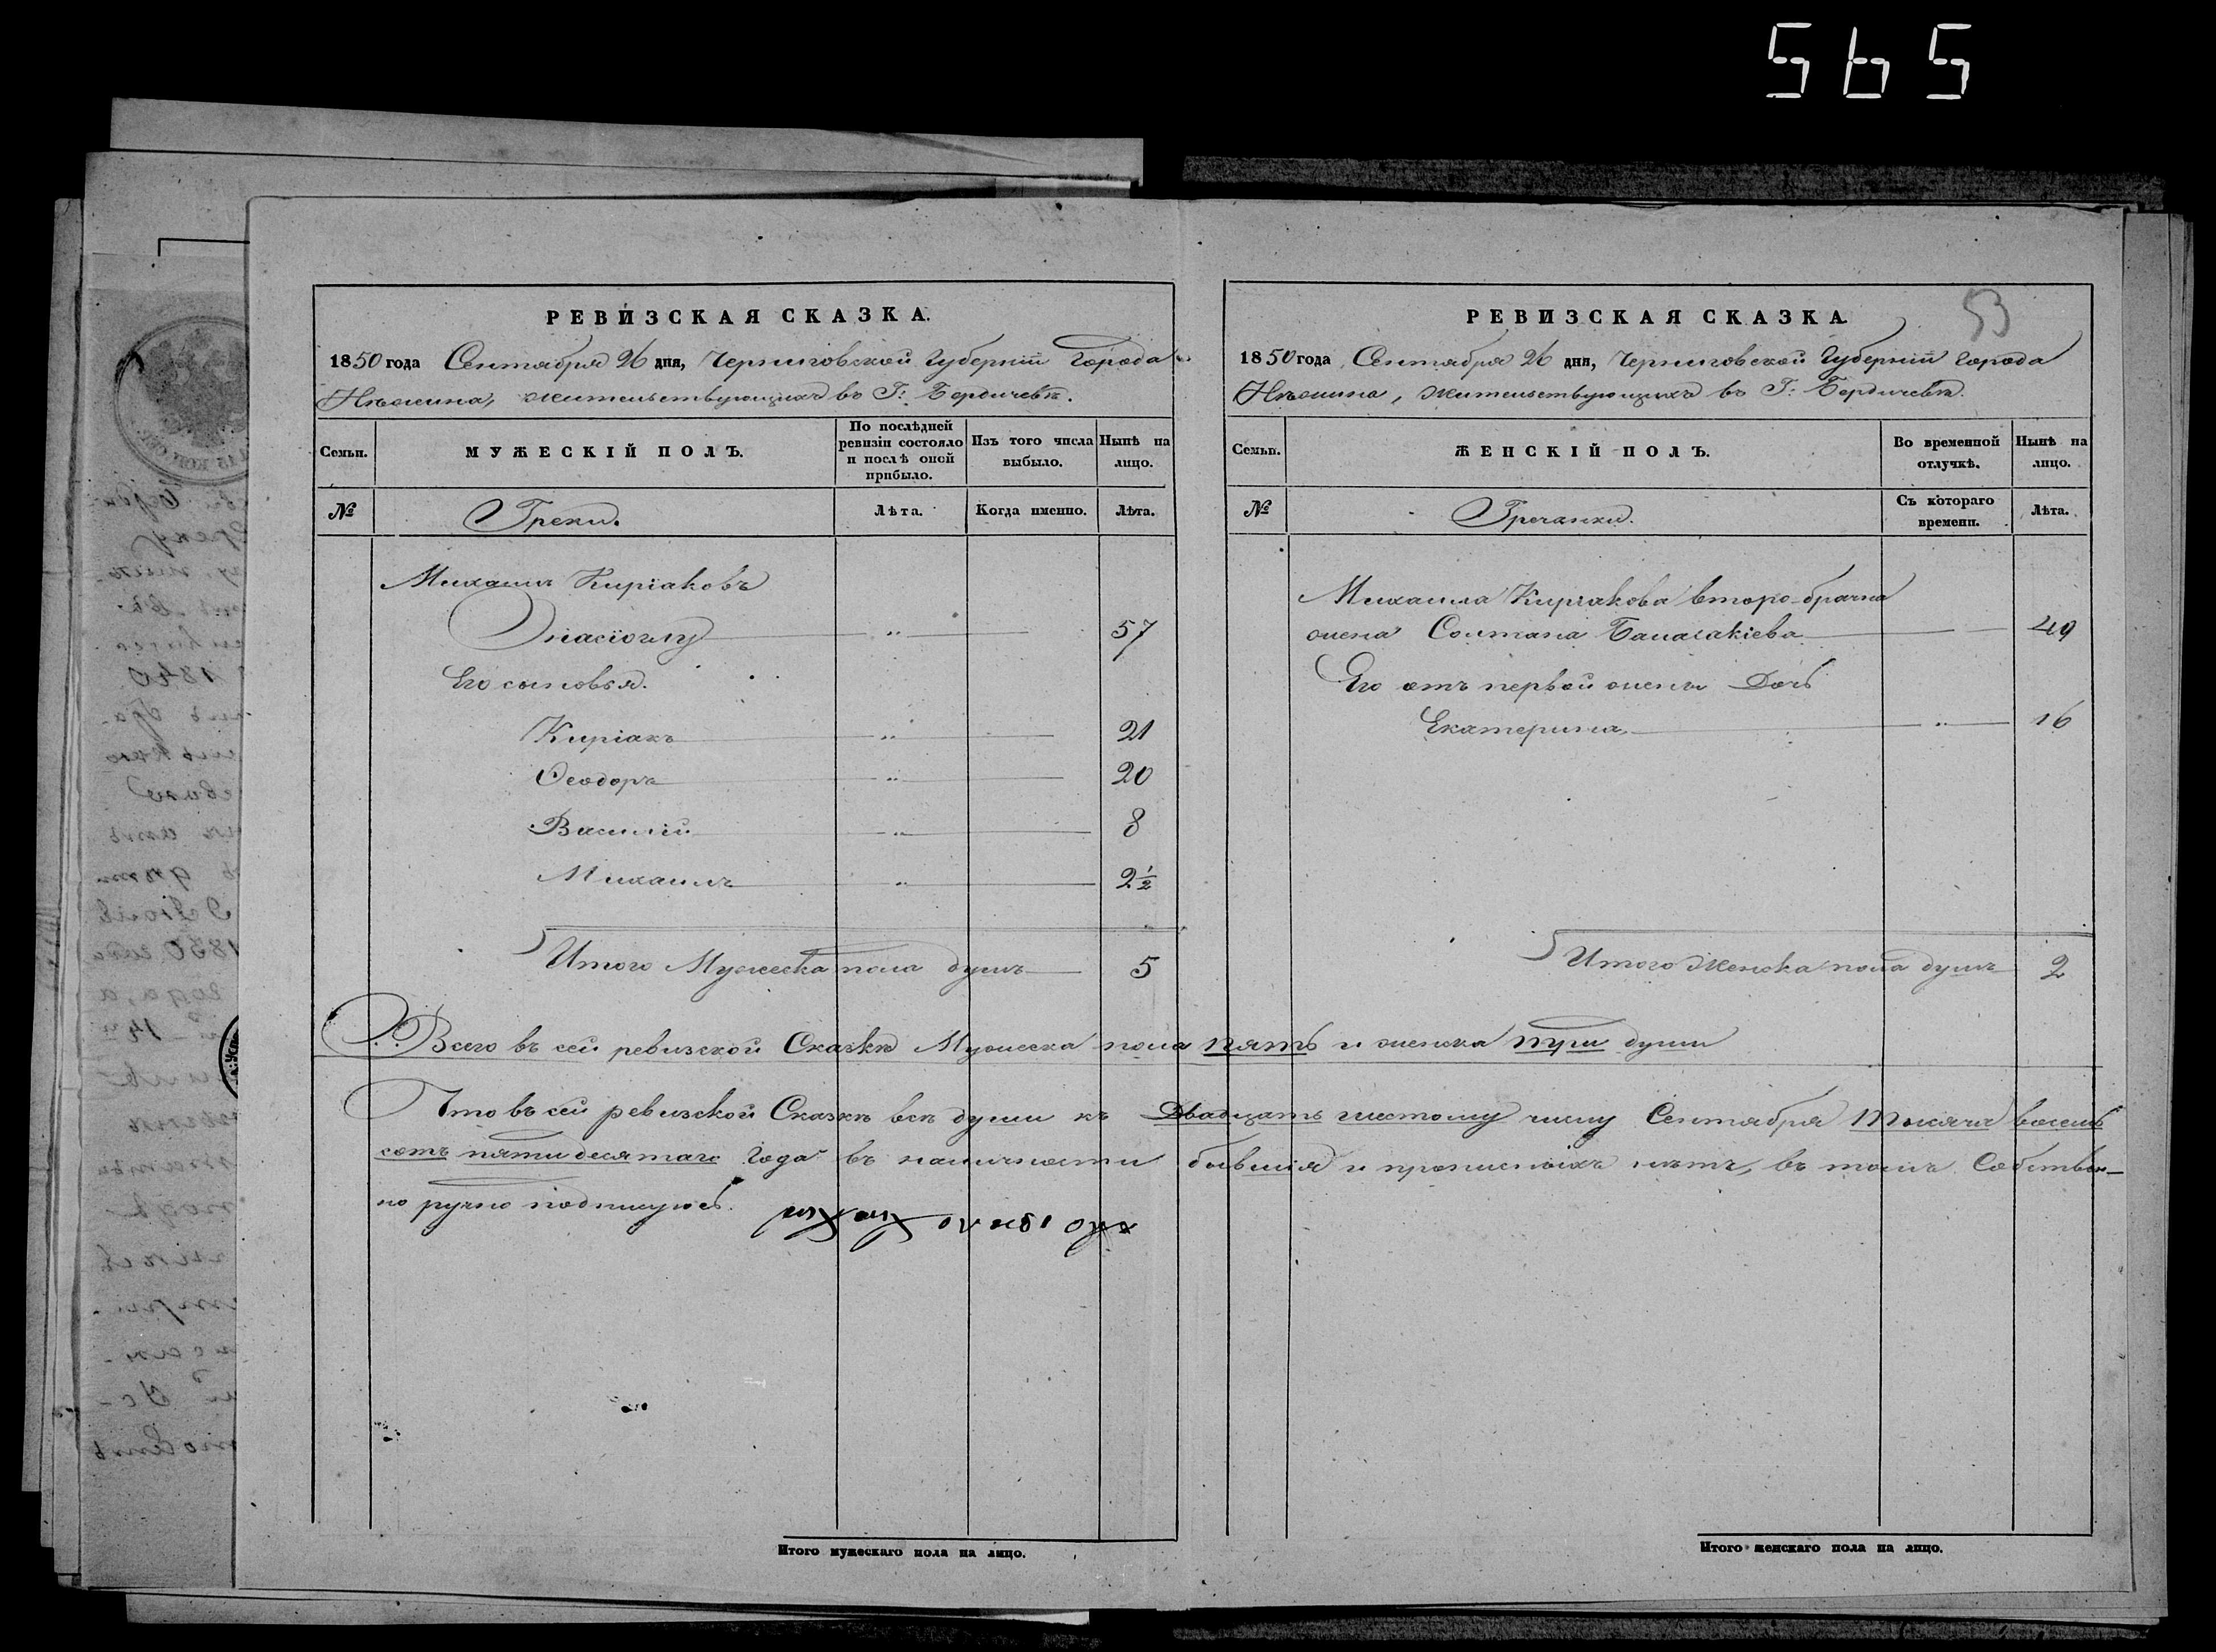 565
53
РЕВИЗСКАЯ СКАЗКА.
1850 года Сентября 26 дня, Черниговской Губерніи Города
Нѣжина, жительствующихъ въ Г: Бердичевѣ.
Семьи.
МУЖЕСКІЙ ПОЛЪ.
По послѣдней ревизіи состояло и послѣ оной прибыло.
Изъ того числа выбыло.
Нынѣ на лицо.
№
Греки.
Лѣта.
Когда именно.
Лѣта.
Михаилъ Киріаковъ
57
Его сыновья.
Киріакъ " 21
Ѳеодоръ " 20
Василій " 8
Михаилъ " 2½
Итого Мужеска пола душъ 5
РЕВИЗСКАЯ СКАЗКА.
1850 года Сентября 26 дня, Черниговской Губерніи города
Нѣжина, жительствующихъ въ Г: Бердичевѣ.
Семьи.
ЖЕНСКІЙ ПОЛЪ.
Во временной отлучкѣ.
Нынѣ на лицо.
№
Гречанки.
Съ котораго времени.
Лѣта.
Михаила Киріакова второ-брачна
жена Солтана 49
Его отъ первой жены Дочь
Екатерина " 16
Итого Женска пола душъ 2
Всего въ сей ревизской Сказкѣ Мужеска пола пять и женска три души
Что въ сей ревизской Сказкѣ всѣ души къ Двадцать шестому числу Сентября Тысяча восемь
сотъ пятидесятаго Года въ наличности бывшія и прописныхъ нѣтъ, въ томъ Собствен-
но ручно подписуюсь.
Итого мужескаго пола на лицо.
Итого женскаго пола на лицо.